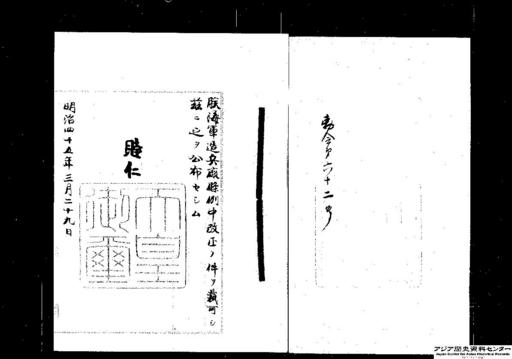 勅令第六十二号
朕海軍造兵廠條例中改正ノ件ヲ裁可シ
茲ニ之ヲ公布セシム
睦仁
天皇御璽
明治四十五年三月二十九日
アジア歴史資料センター
Japan Center for Asian Historical Records